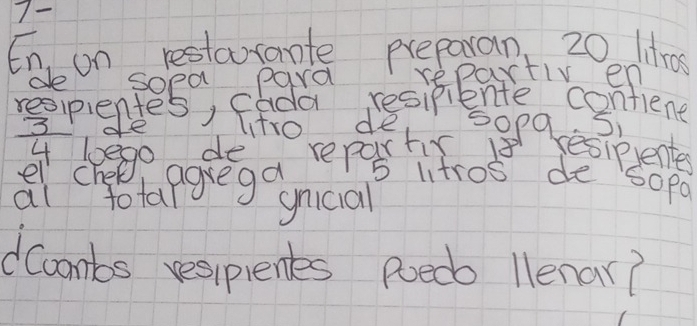 7-
En un restaurante preparan 20 litros
de sopa para repartir en
resipientes, cada resipiente contiene
3/4 de litro de sopa. Si
luego de repartir 18 resipientes
el chef agrega 5 litros de sopa
al total ynicial
¿Cuantos resipientes puedo llenar?